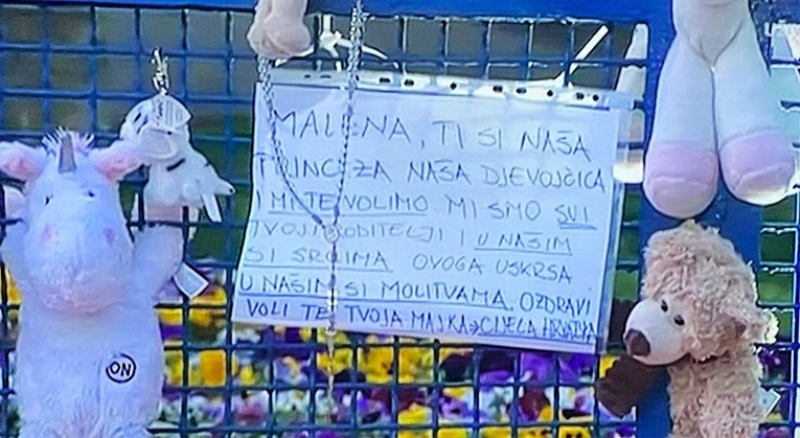 MALENA, TI SI NAŠA
PRINCEZA NAŠA DJEVOJČICA
I MI TE VOLIMO. MI SMO SVI
TVOJI RODITELJI I U NAŠIM
SI SRCIMA OVOGA USKRSA
U NAŠIM SI MOLITVAMA. OZDRAVI
VOLI TE TVOJA MAJKA→CIJELA HRVATSKA
ON